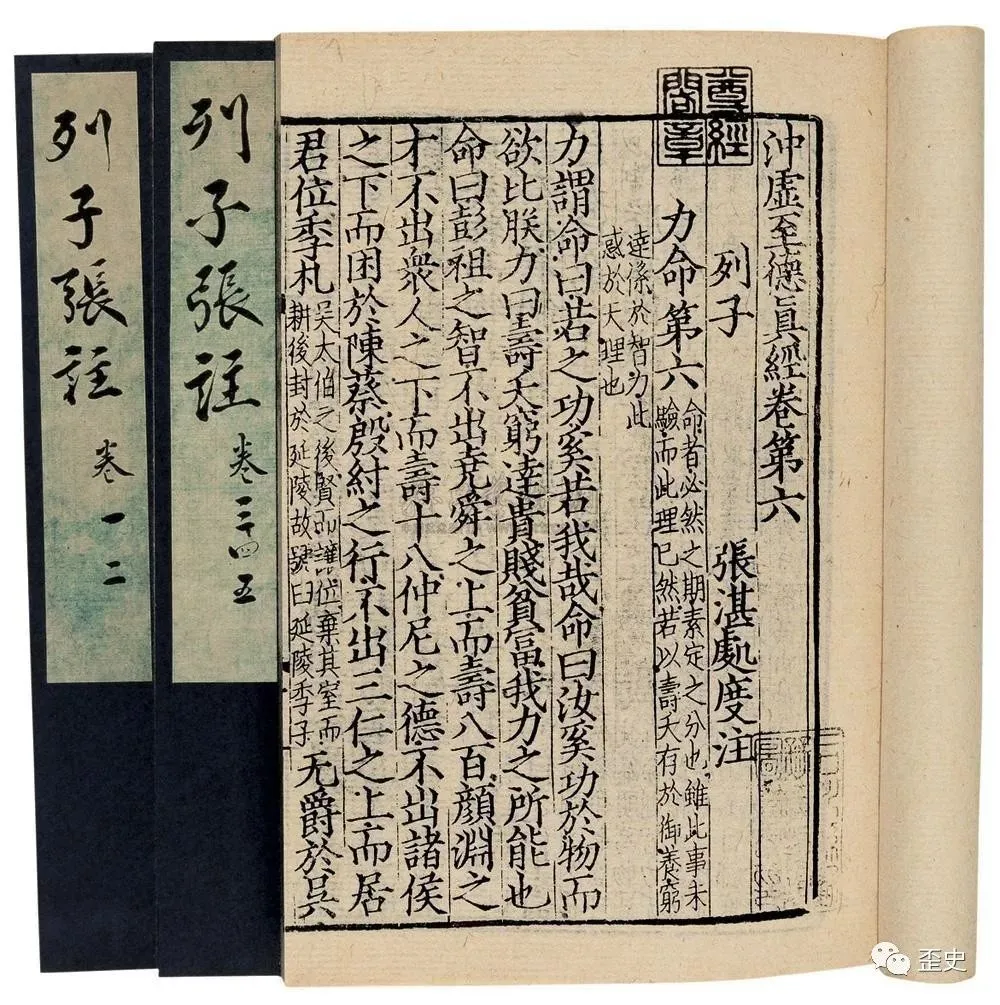 沖虛至德眞經卷第六
列子 張湛處度注
尊經
閣章
力命第六
命者必然之期素定之分也雖此事未
驗而此理已然若以壽夭有於御養窮
達係於智力此
惑於天理也
力謂命曰若之功奚若我哉命曰汝奚功於物而
欲比朕力曰壽夭窮達貴賤貧富我力之所能也
命曰彭祖之智不出堯舜之上而壽八百顏淵之
才不出衆人之下而壽十八仲尼之德不出諸侯
之下而困於陳蔡殷紂之行不出三仁之上而居
君位季札
吳太伯之後賢而讓位棄其室而
耕後封於延陵故號曰延陵季子
无爵於吳
列子張註 卷三四五
列子張註 卷一二
歪史